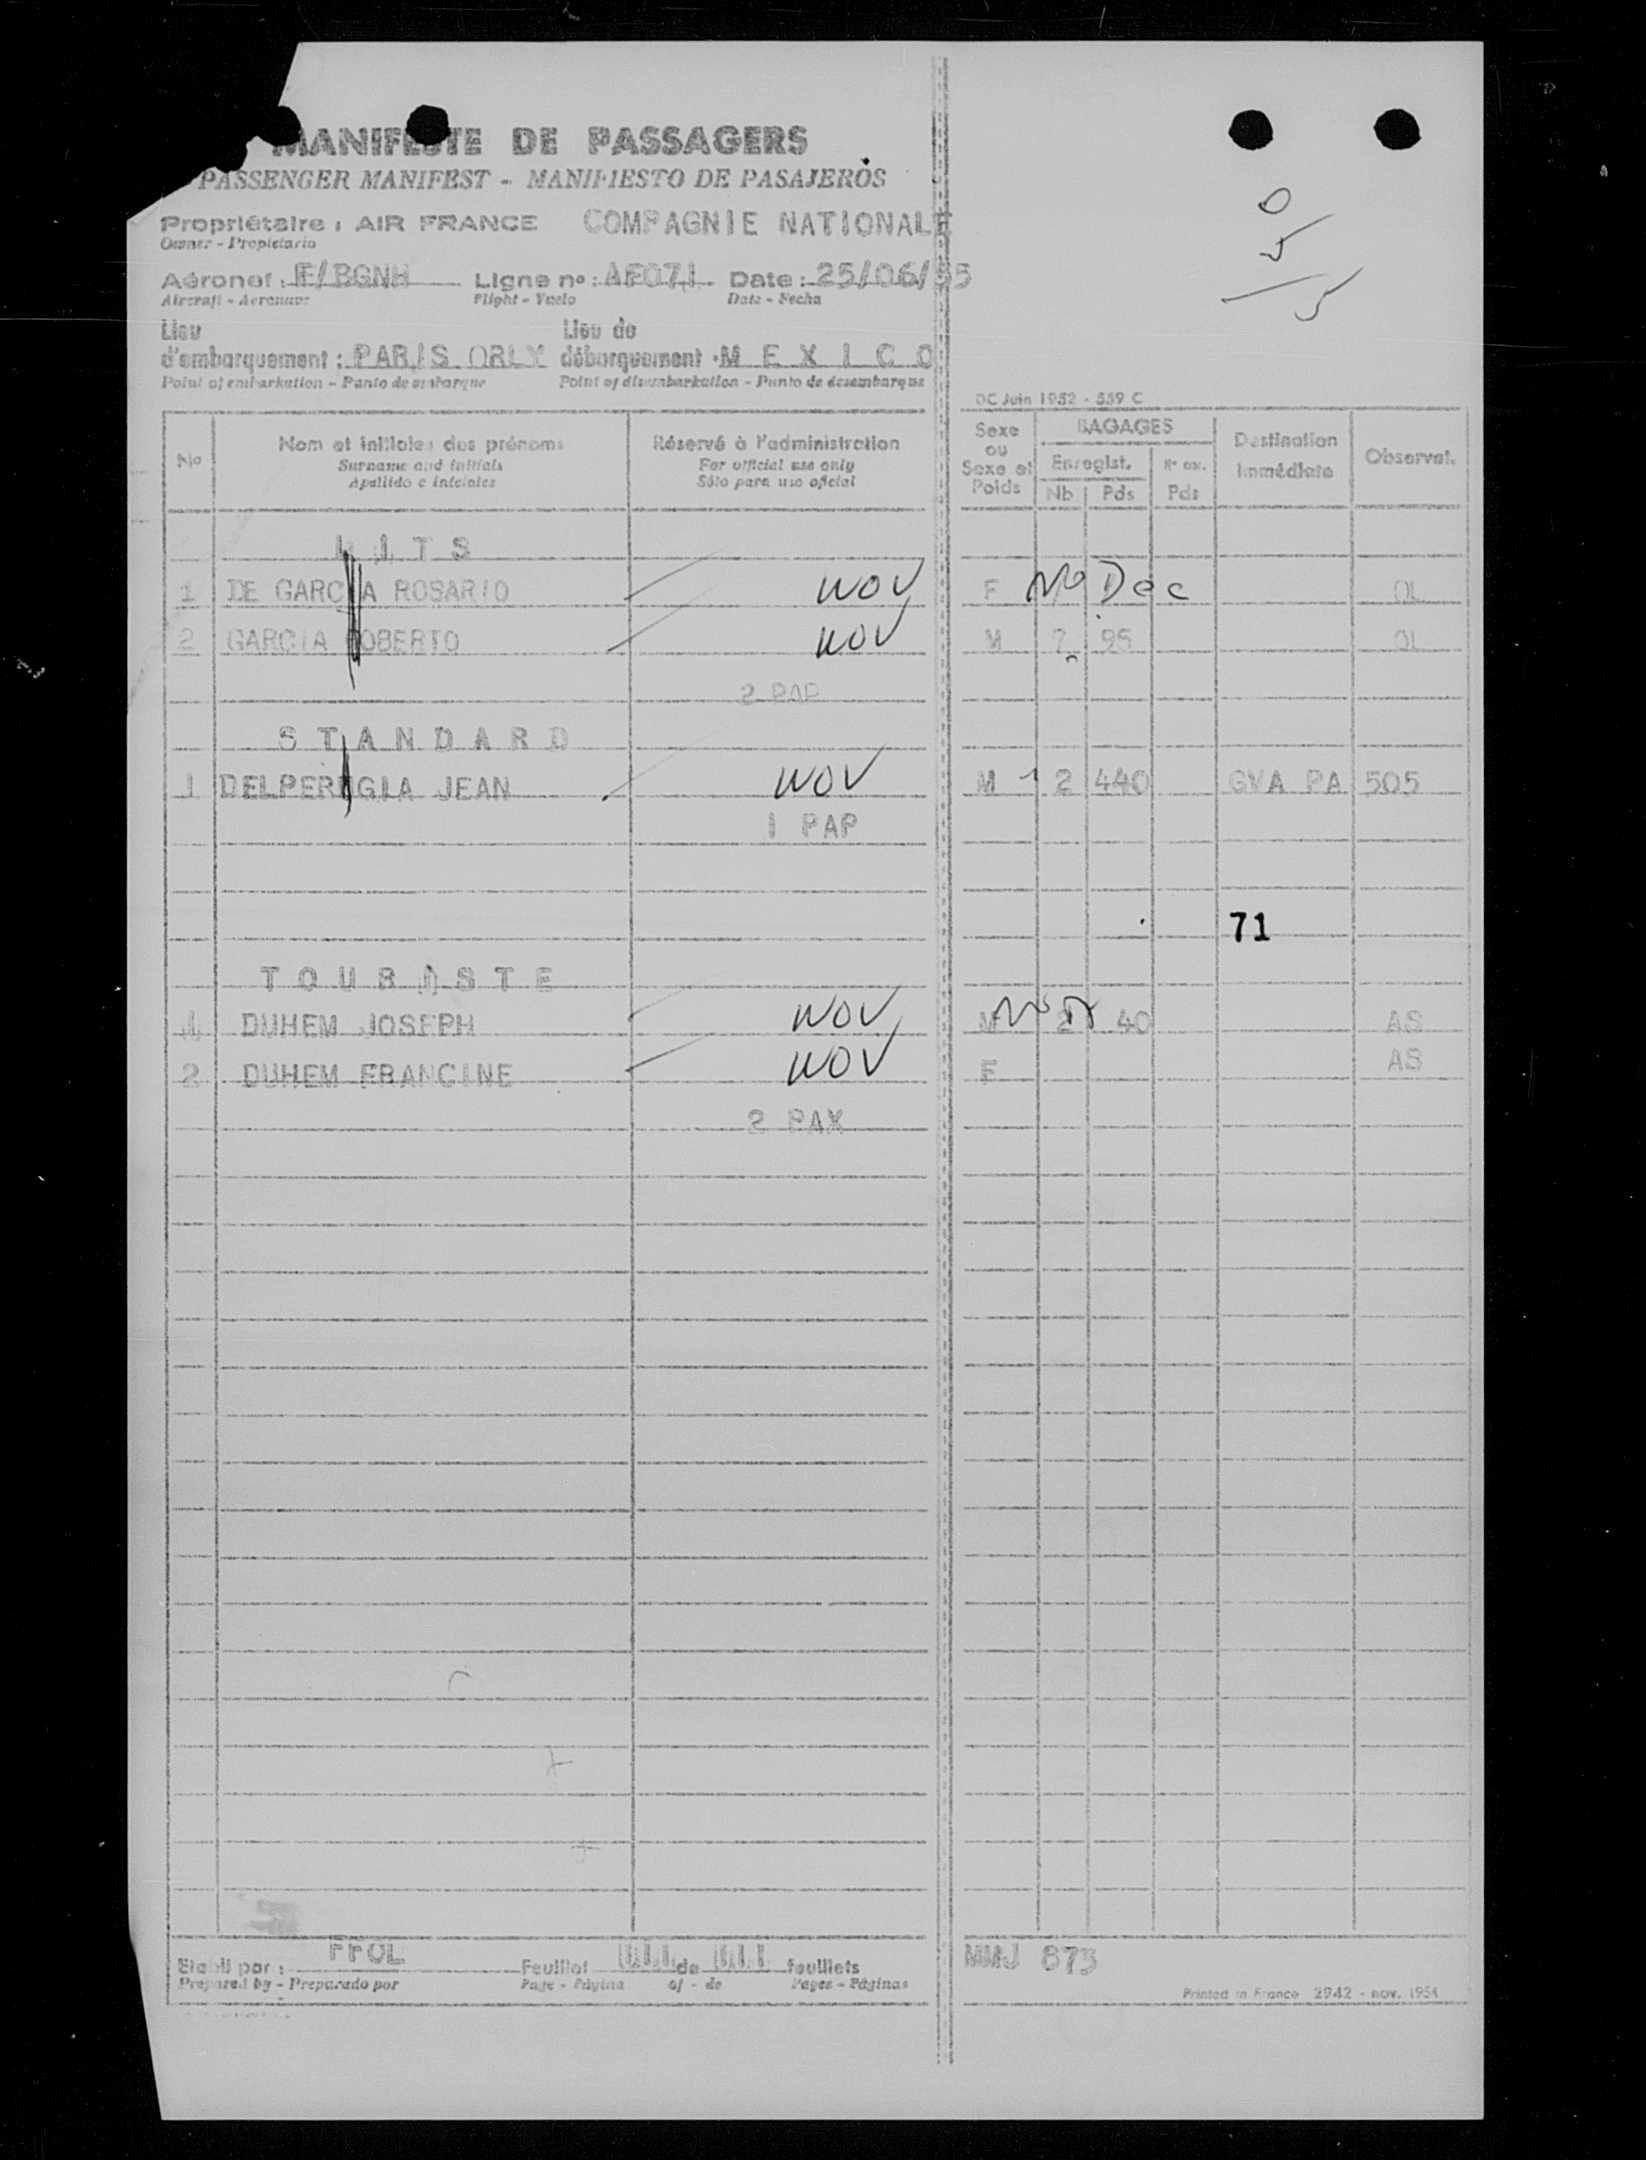 MANIFESTE DE PASSAGERS
PASSENGER MANIFEST - MANIFIESTO DE PASAJEROS
Propriétaire : AIR FRANCE COMPAGNIE NATIONALE
Owner - Propietario
Aéronef : F/BGNH Ligne no : AF071 Date : 25/06/55
Aircraft - Aeronave Flight - Vuelo Date - Fecha
Lieu Lieu de
d'embarquement : PARIS ORLY débarquement . M E X I C O
Point of embarkation - Punto de embarque Point of disembarkation - Punto de desembarque
0
5
5
DC Juin 1952 - 559 C
No Nom et initiales des prénoms Réservé à l'administration Sexe BAGAGES Destination Observat.
Surname and initials For official use only ou Enregist. Immédiate
Apellido e iniciales Sólo para uso oficial Sexe et Poids Nb Pds Pds
L I T S
1 DE GARCIA ROSARIO NOV F No Dec OL
2 GARCIA ROBERTO NOV M 2 95 OL
2 PAP
S T A N D A R D
1 DELPERUGIA JEAN NOV M 2 440 GVA PA 505
1 PAP
71
T O U R I S T E
1 DUHEM JOSEPH NOV M 2 40 AS
2 DUHEM FRANCINE NOV F AS
2 PAX
Etabli par : FFOL Feuillet de feuillets MMJ 873
Prepared by - Preparado por Page - Página of - de Pages - Páginas
Printed in France 2942 - nov. 1954